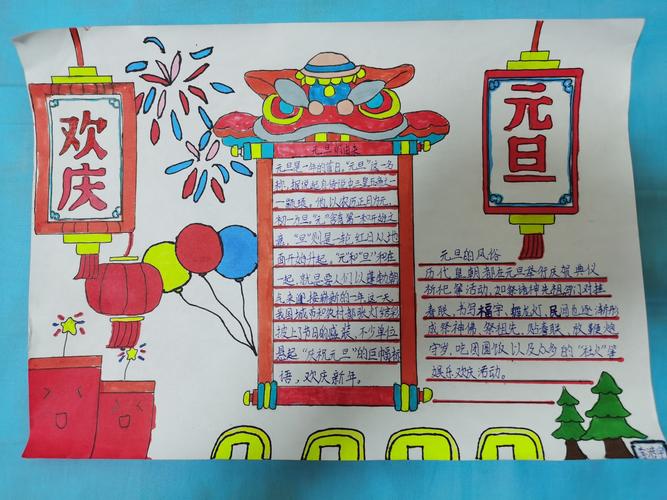 欢庆
元旦
元旦的由来
元旦是一年的首日,"元旦"这一名
称,据说起自传说中三皇五帝之一
颛顼,他以农历正月为元,
初一为旦,"元"含有第一和开始之
意,"旦"则是一轮红日从地
面开始升起,"元"和"旦"和在
一起,就是要人们以蓬勃朝
气来迎接崭新的一年这一天,
我国城市和农村都张灯结彩
披上节日的盛装,不少单位
悬起"庆祝元旦"的巨幅标
语,欢庆新年。
元旦的风俗
历代皇朝都在元旦举行庆贺典仪
祈祀等活动,如祭诸神先祖,门对挂
春联,书写福字、舞龙灯,民间也逐渐形
成祭神佛、祭祖先、贴春联、放鞭炮
守岁、吃团圆饭以及众多的"社火"等
娱乐欢庆活动。